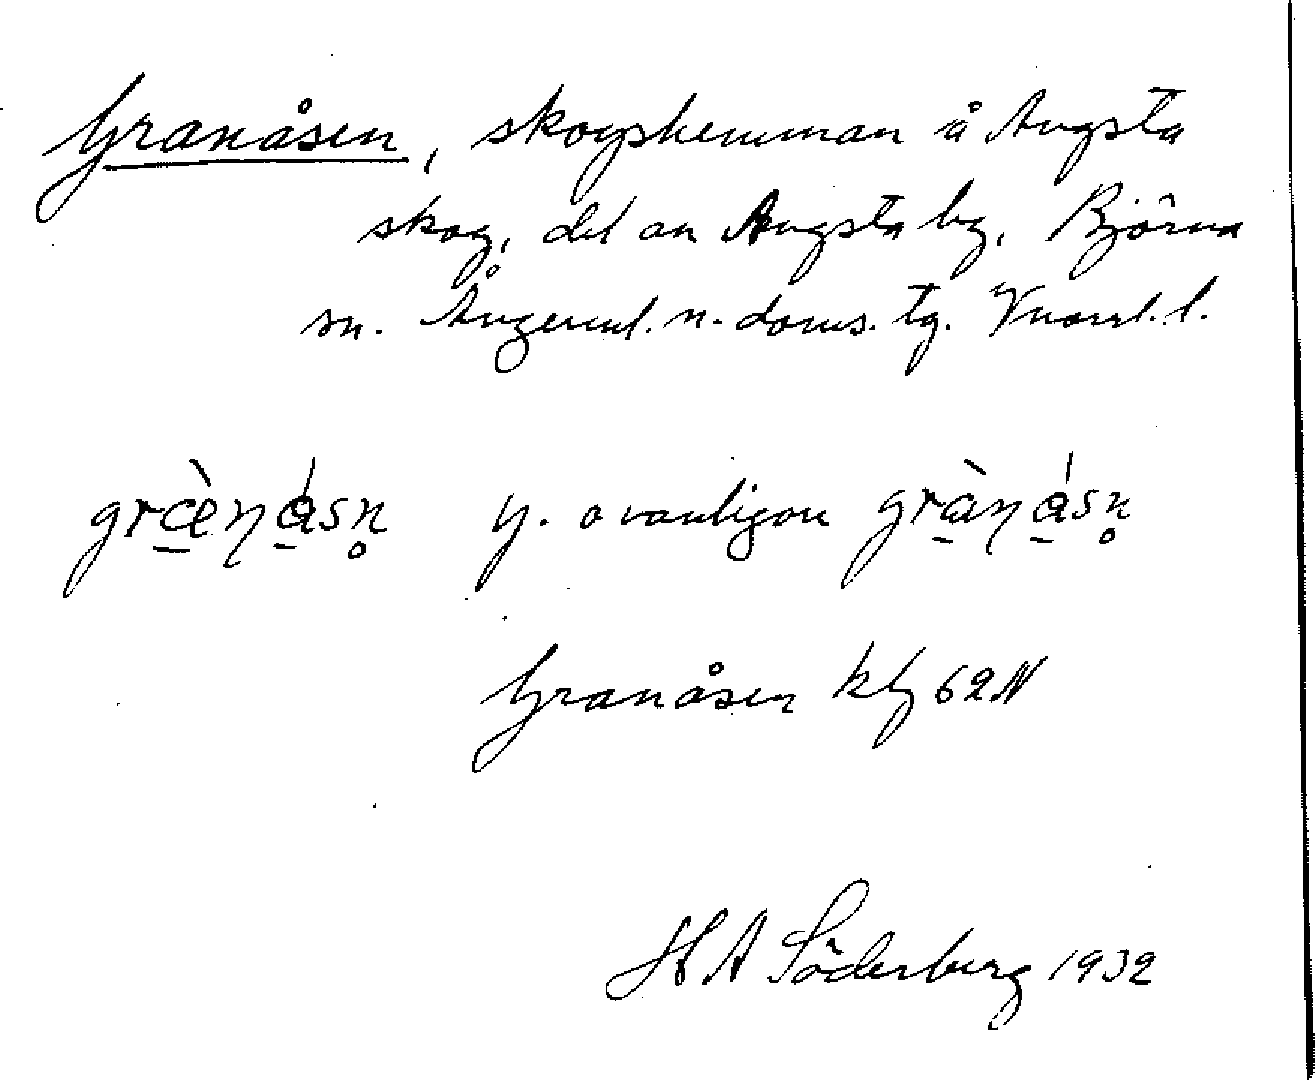 Granåsen, skogshemman å Angsta
skog, del av Angsta by, Björna
sn. Ångerml. n. doms. tg. Vnorrl. l.
græ̀násn̥ y. ovanligare grànásn̥
Granåsen kbl 62N
H A Söderberg 1932